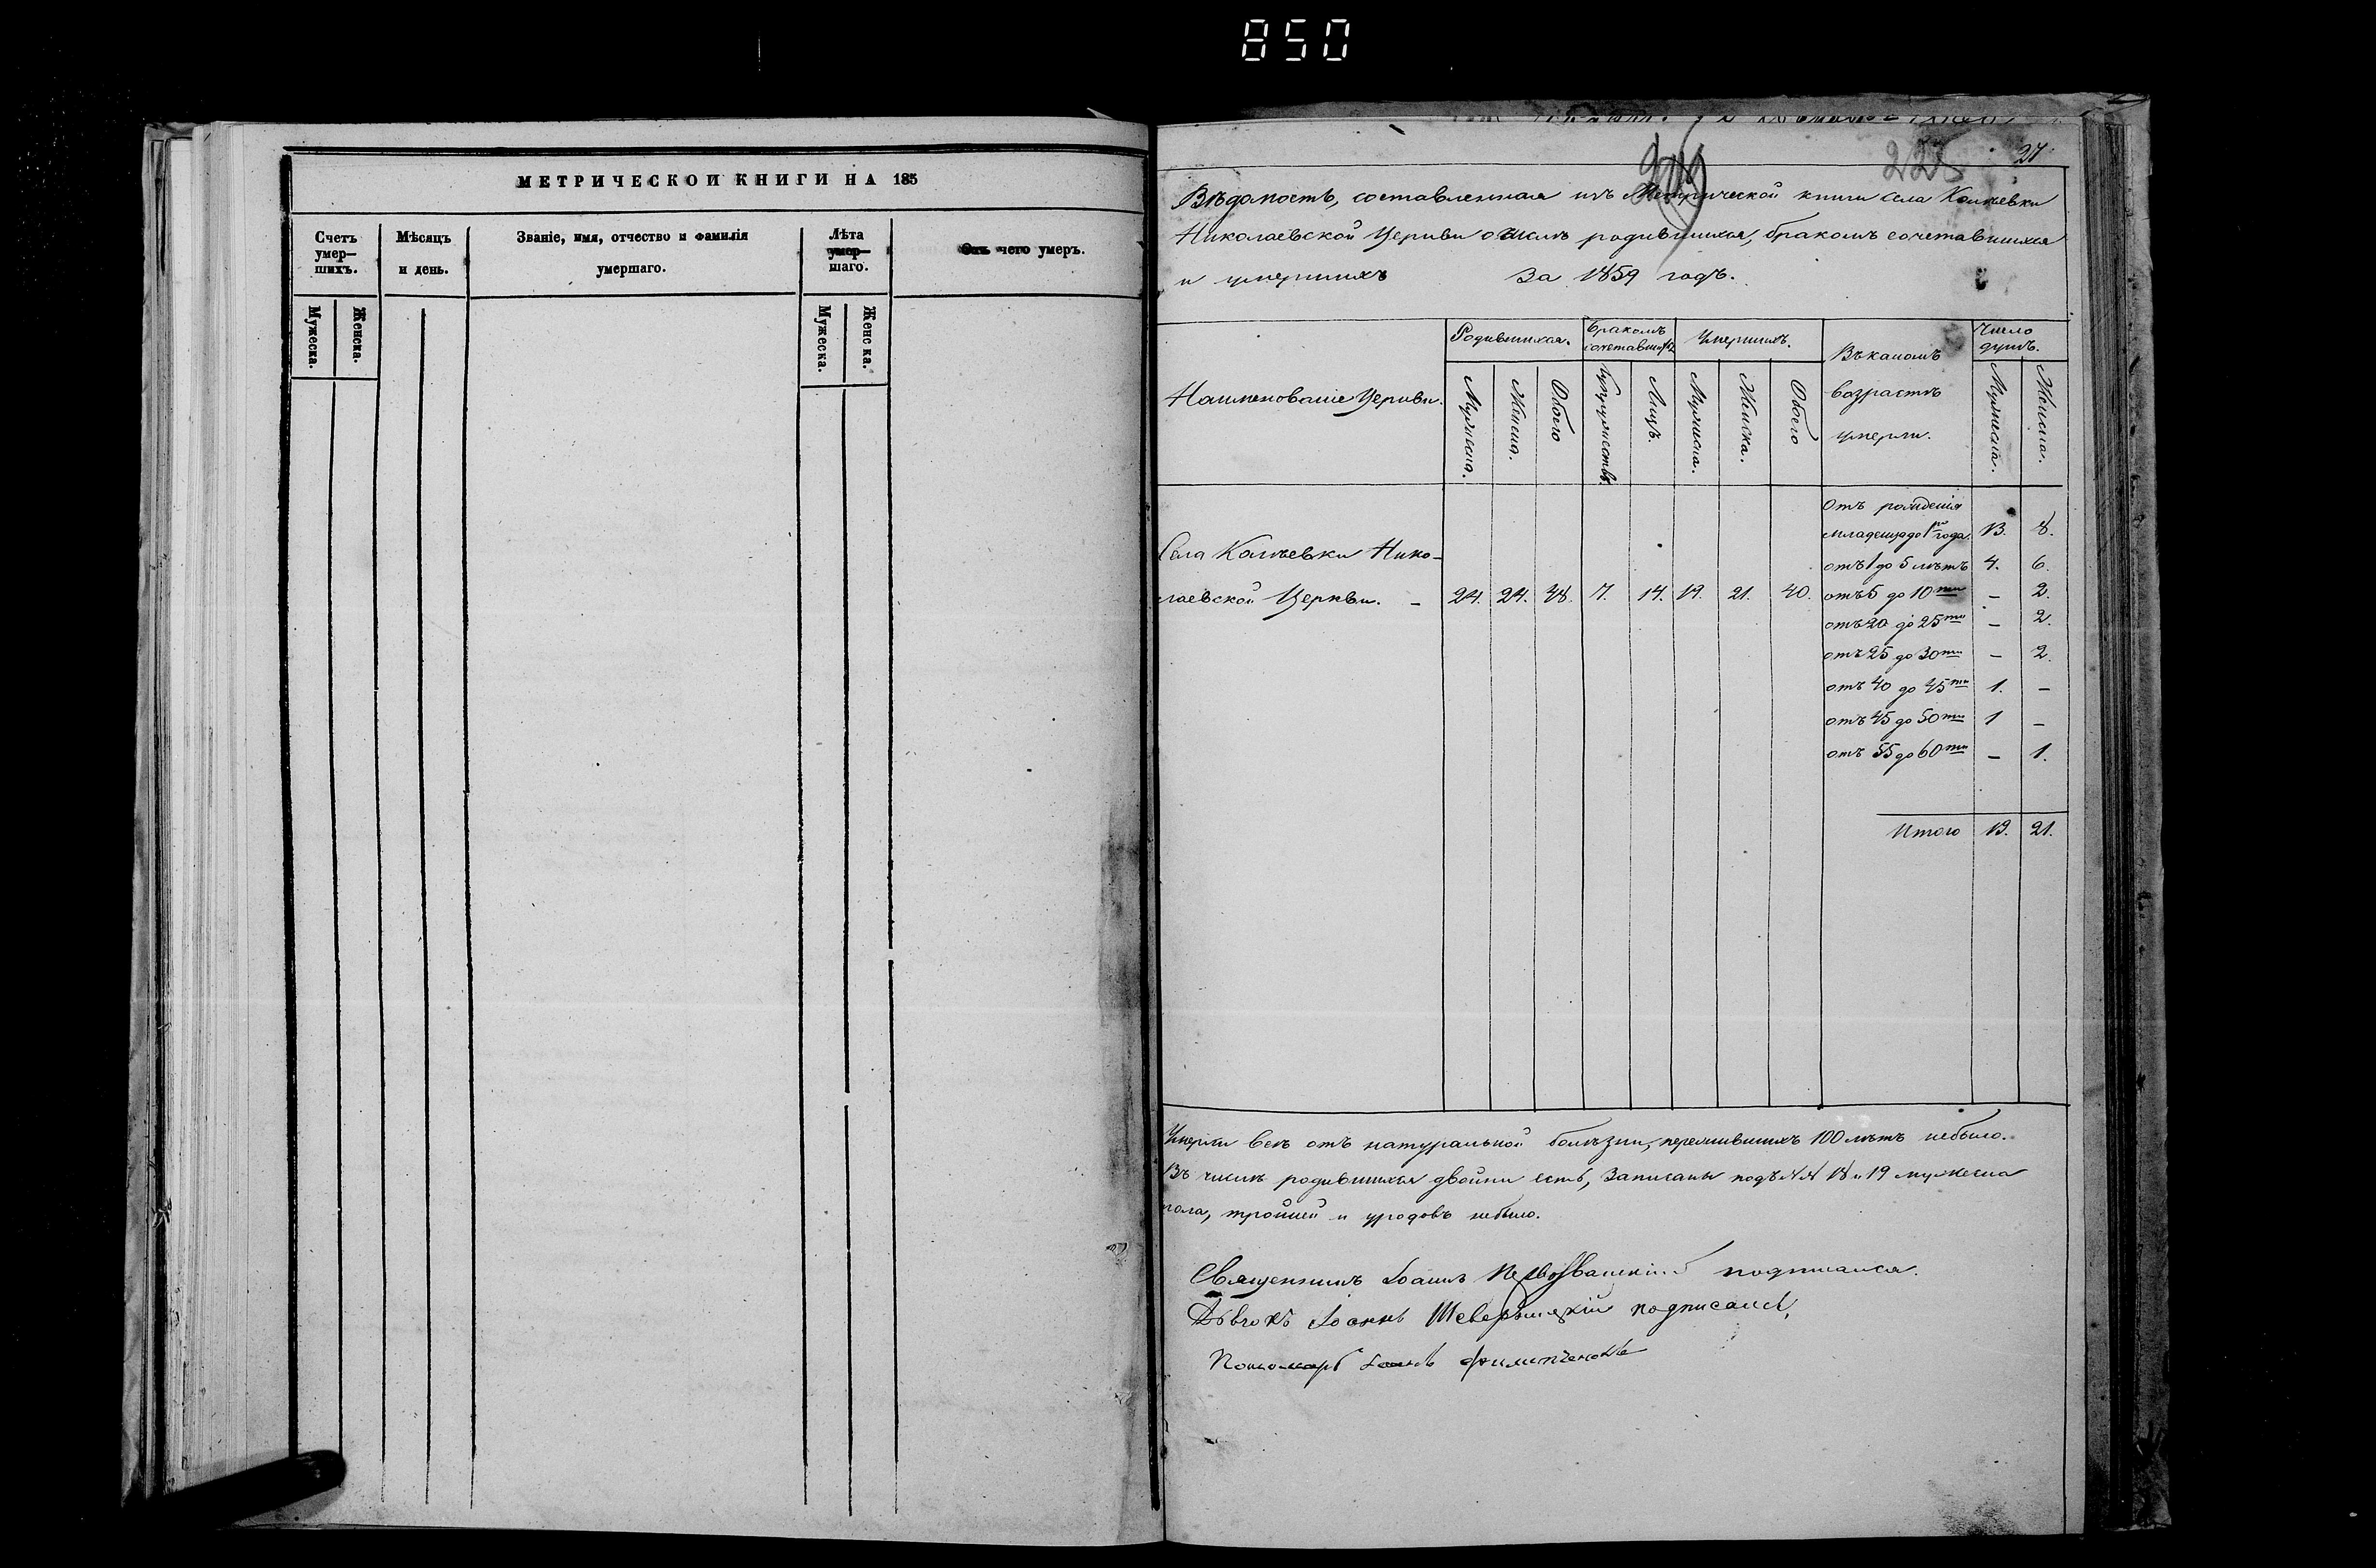 850
МЕТРИЧЕСКОЙ КНИГИ НА 185
Счетъ умер—шихъ.
Мѣсяцъ и день.
Званіе, имя, отчество и фамилія умершаго.
Лѣта умер—шаго.
Отъ чего умеръ.
Мужеска.
Женска.
Мужеска.
Женска.
225
27
Вѣдомость, составленная изъ Метрической книги села
Николаевской Церкви о числѣ родившихся, бракомъ сочетавшихся
и умершихъ За 1859 годъ.
Наименованіе Церкви.
Родившихся.
Бракомъ сочетавшихся
Умершихъ.
Въ какомъ возрастѣ умерли.
Число душъ.
Мужеска.
Женска.
Обоего
Супружествъ.
Лицъ.
Мужеска.
Женска.
Обоего
Мужеска.
Женска.
Отъ рожденія
младенца до 1го года 13. 8.
отъ 1 до 5 лѣтъ 4. 6.
Села Нико-
лаевской Церкви. – 24. 24. 48. 7. 14. 19. 21. 40. отъ 5 до 10ти – 2.
отъ 20 до 25ти – 2.
отъ 25 до 30ти – 2.
отъ 40 до 45ти 1. –
отъ 45 до 50ти 1 –
отъ 55 до 60ти – 1.
Итого 19. 21.
Умерли всѣ отъ натуральной болѣзни, пережившихъ 100 лѣтъ небыло.
Въ числѣ родившихся двойни есть, записаны подъ №№ 18 и 19 мужеска
пола, тройней и уродовъ небыло.
Священникъ Іоаннъ Первозванскій подписался.
Дьячокъ Іоаннъ подписался,
Пономарь